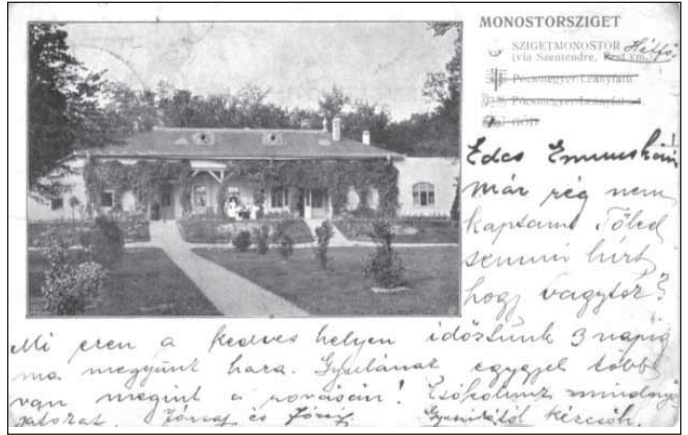 MONOSTORSZIGET
SZIGETMONOSTOR Hétfő.
(via Szentendre, Pest vm.)
Pócsmegyer-Leányfalu
Pócsmegyer-Leányfalu
GÖD
Édes Emmuskám!
Már rég nem
kaptam Tőled
semmi hírt
hogy vagytok?
Mi ezen a kedves helyen időztünk 3 napig
ma megyünk haza. Gyulának egygyel több
van megint a rovásán! Csókolunk mindnyá
jatokat. és kézcsók.